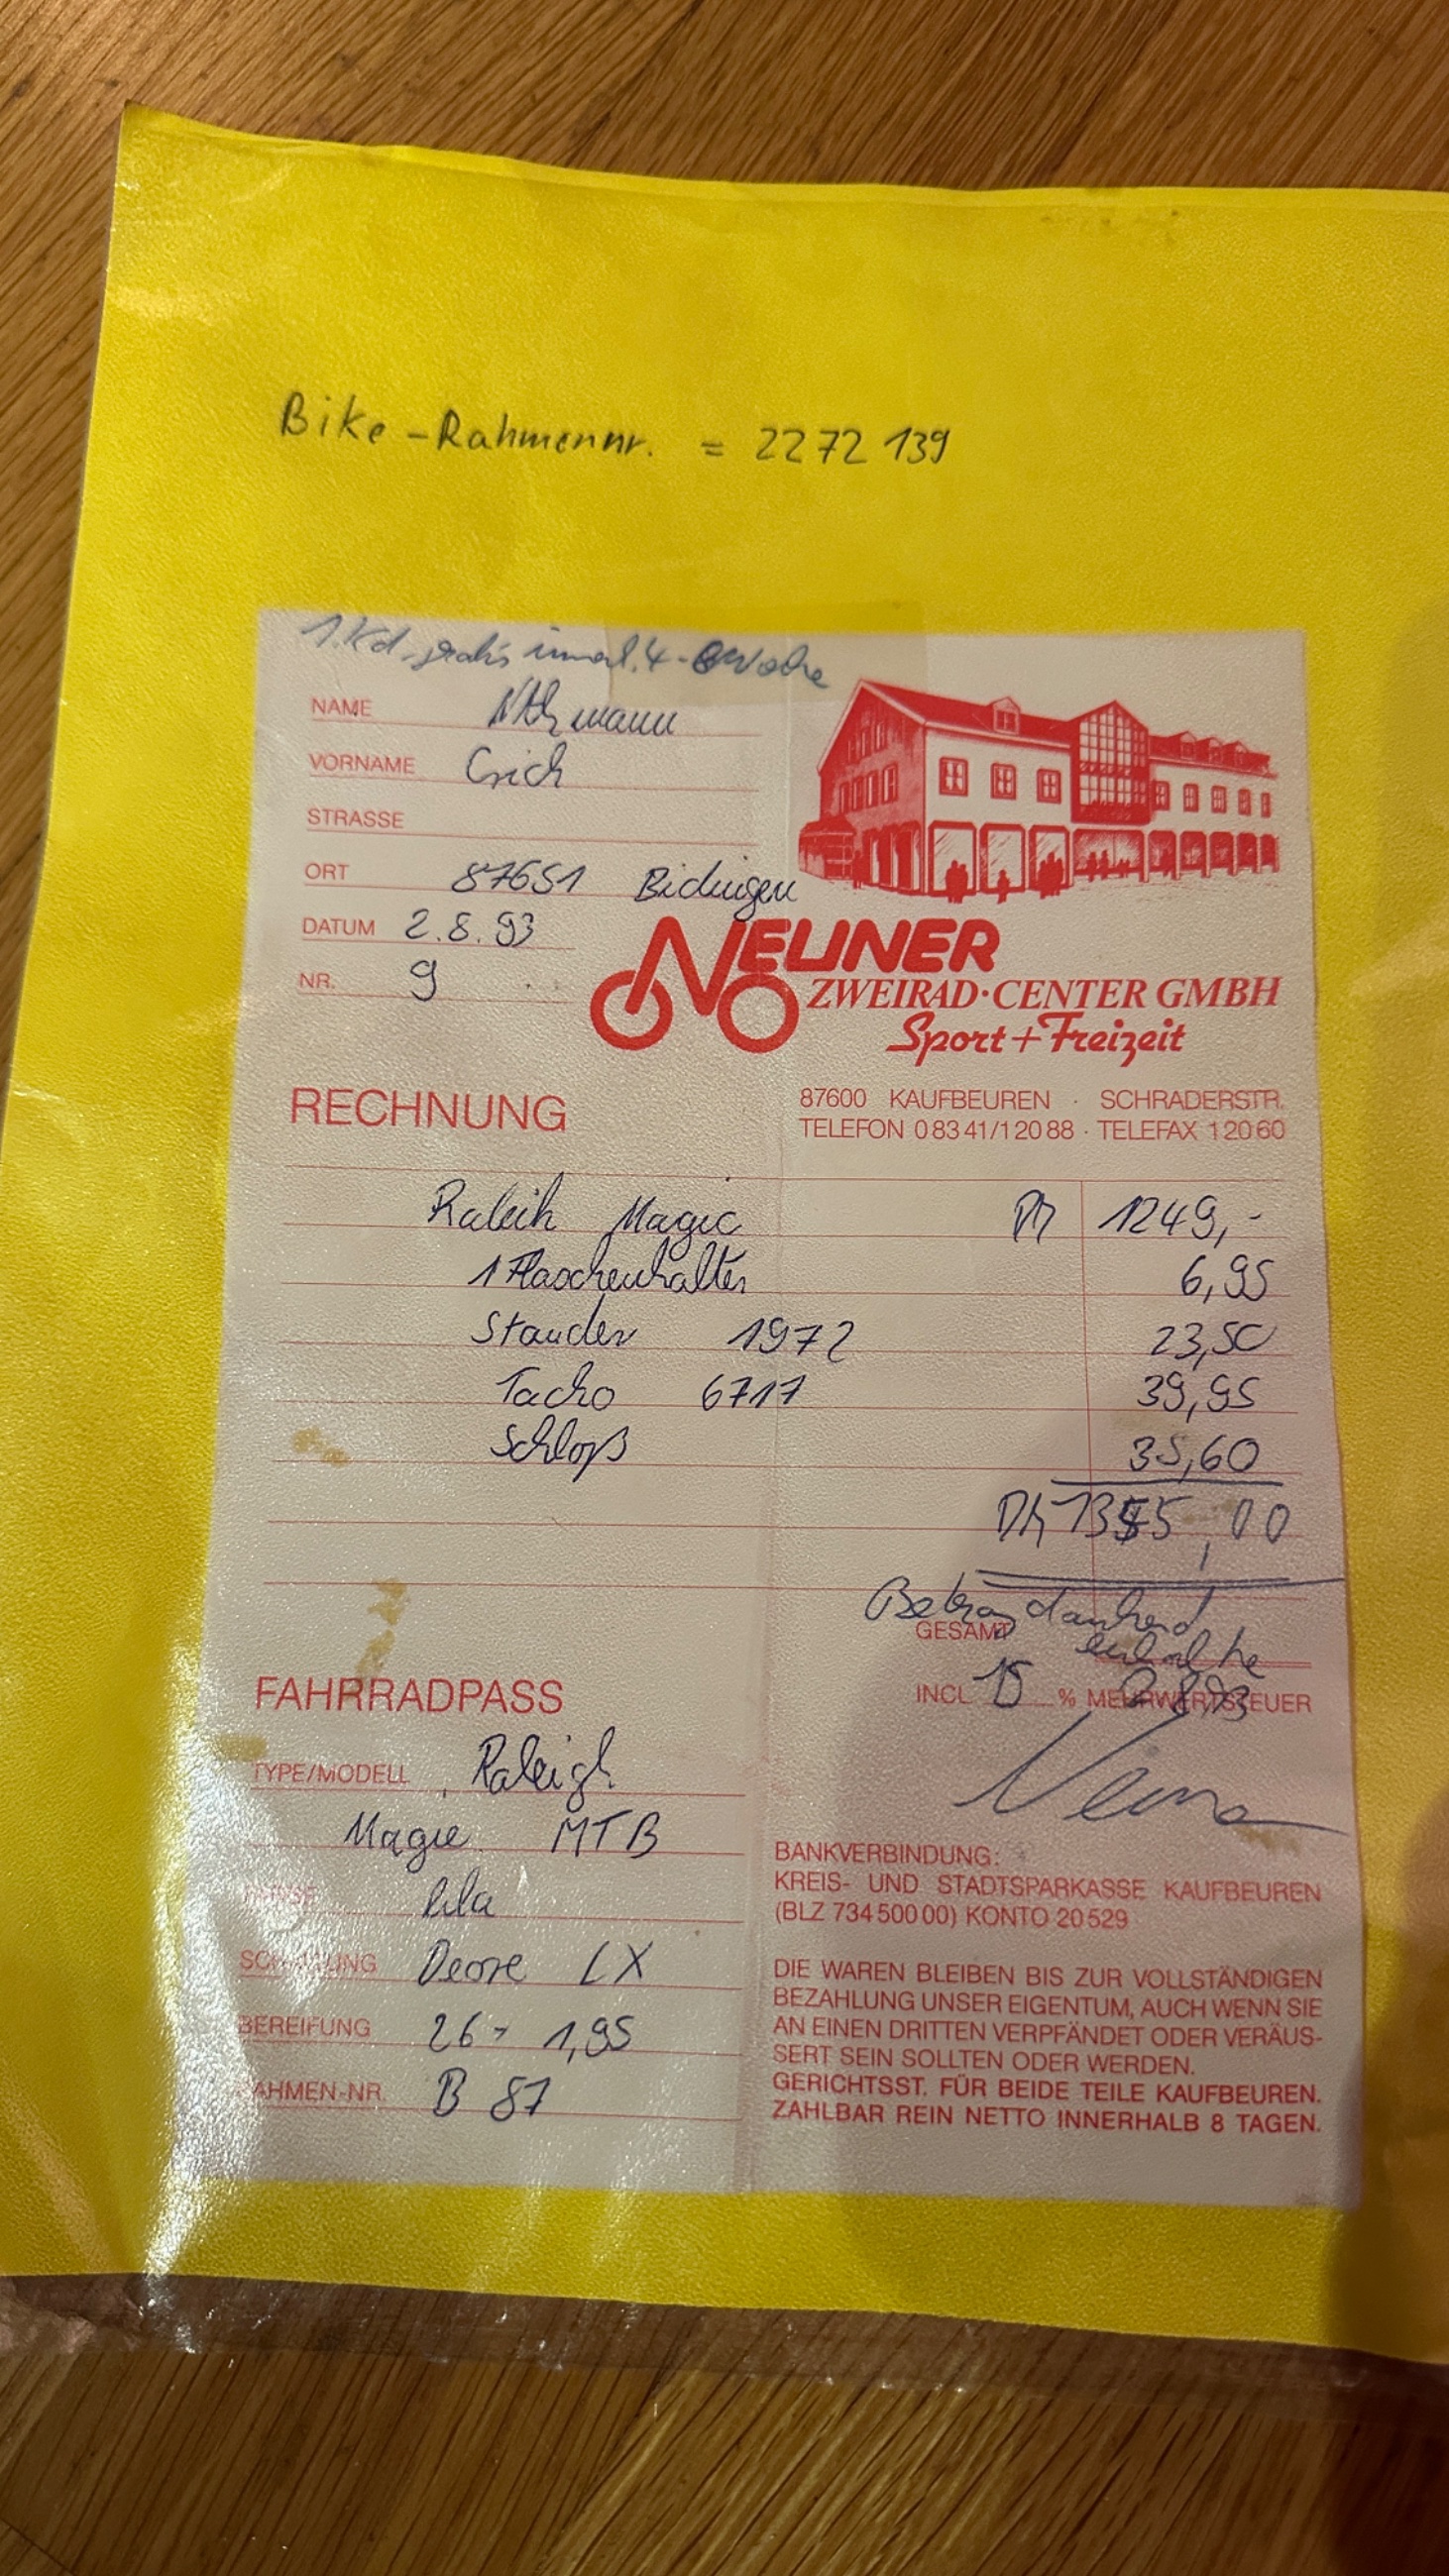 Bike-Rahmennr. = 2272 139
1. Kd. gratis innerh. 4-6 Woche
NAME
VORNAME Erich
STRASSE
ORT 87651 Bidingen
DATUM 2.8.93
NR. 9
NEUNER
ZWEIRAD·CENTER GMBH
Sport+Freizeit
RECHNUNG
87600 KAUFBEUREN · SCHRADERSTR.
TELEFON 0 83 41/1 20 88 · TELEFAX 1 20 60
Raleih Magic DM 1249,-
1 Flaschenhalter 6,95
Stander 1972 23,50
Tacho 6717 39,95
Schloß 35,60
DM 1355,00
Betrag dankend
GESAMT erhalten
INCL. 15 % MEHRWERTSTEUER
2.8.93
FAHRRADPASS
TYPE/MODELL Raleigh
Magic MTB
lila
SCHALTUNG Deore LX
BEREIFUNG 26 × 1,95
RAHMEN-NR. B 87
BANKVERBINDUNG:
KREIS- UND STADTSPARKASSE KAUFBEUREN
(BLZ 734 500 00) KONTO 20 529
DIE WAREN BLEIBEN BIS ZUR VOLLSTÄNDIGEN
BEZAHLUNG UNSER EIGENTUM, AUCH WENN SIE
AN EINEN DRITTEN VERPFÄNDET ODER VERÄUS-
SERT SEIN SOLLTEN ODER WERDEN.
GERICHTSST. FÜR BEIDE TEILE KAUFBEUREN.
ZAHLBAR REIN NETTO INNERHALB 8 TAGEN.